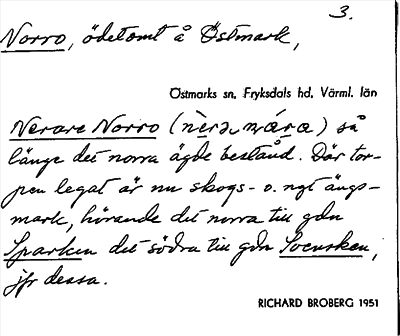 3.
Norro, ödetomt å Östmark,
Östmarks sn, Fryksdals hd, Värml. län
Nerare Norro (nèrə nøra) så
länge det norra ägde bestånd. Där tor-
pen legat är nu skogs- o. ngt ängs-
mark, hörande det norra till gdn
Sparken det södra till gdn Svensken,
jfr dessa.
RICHARD BROBERG 1951